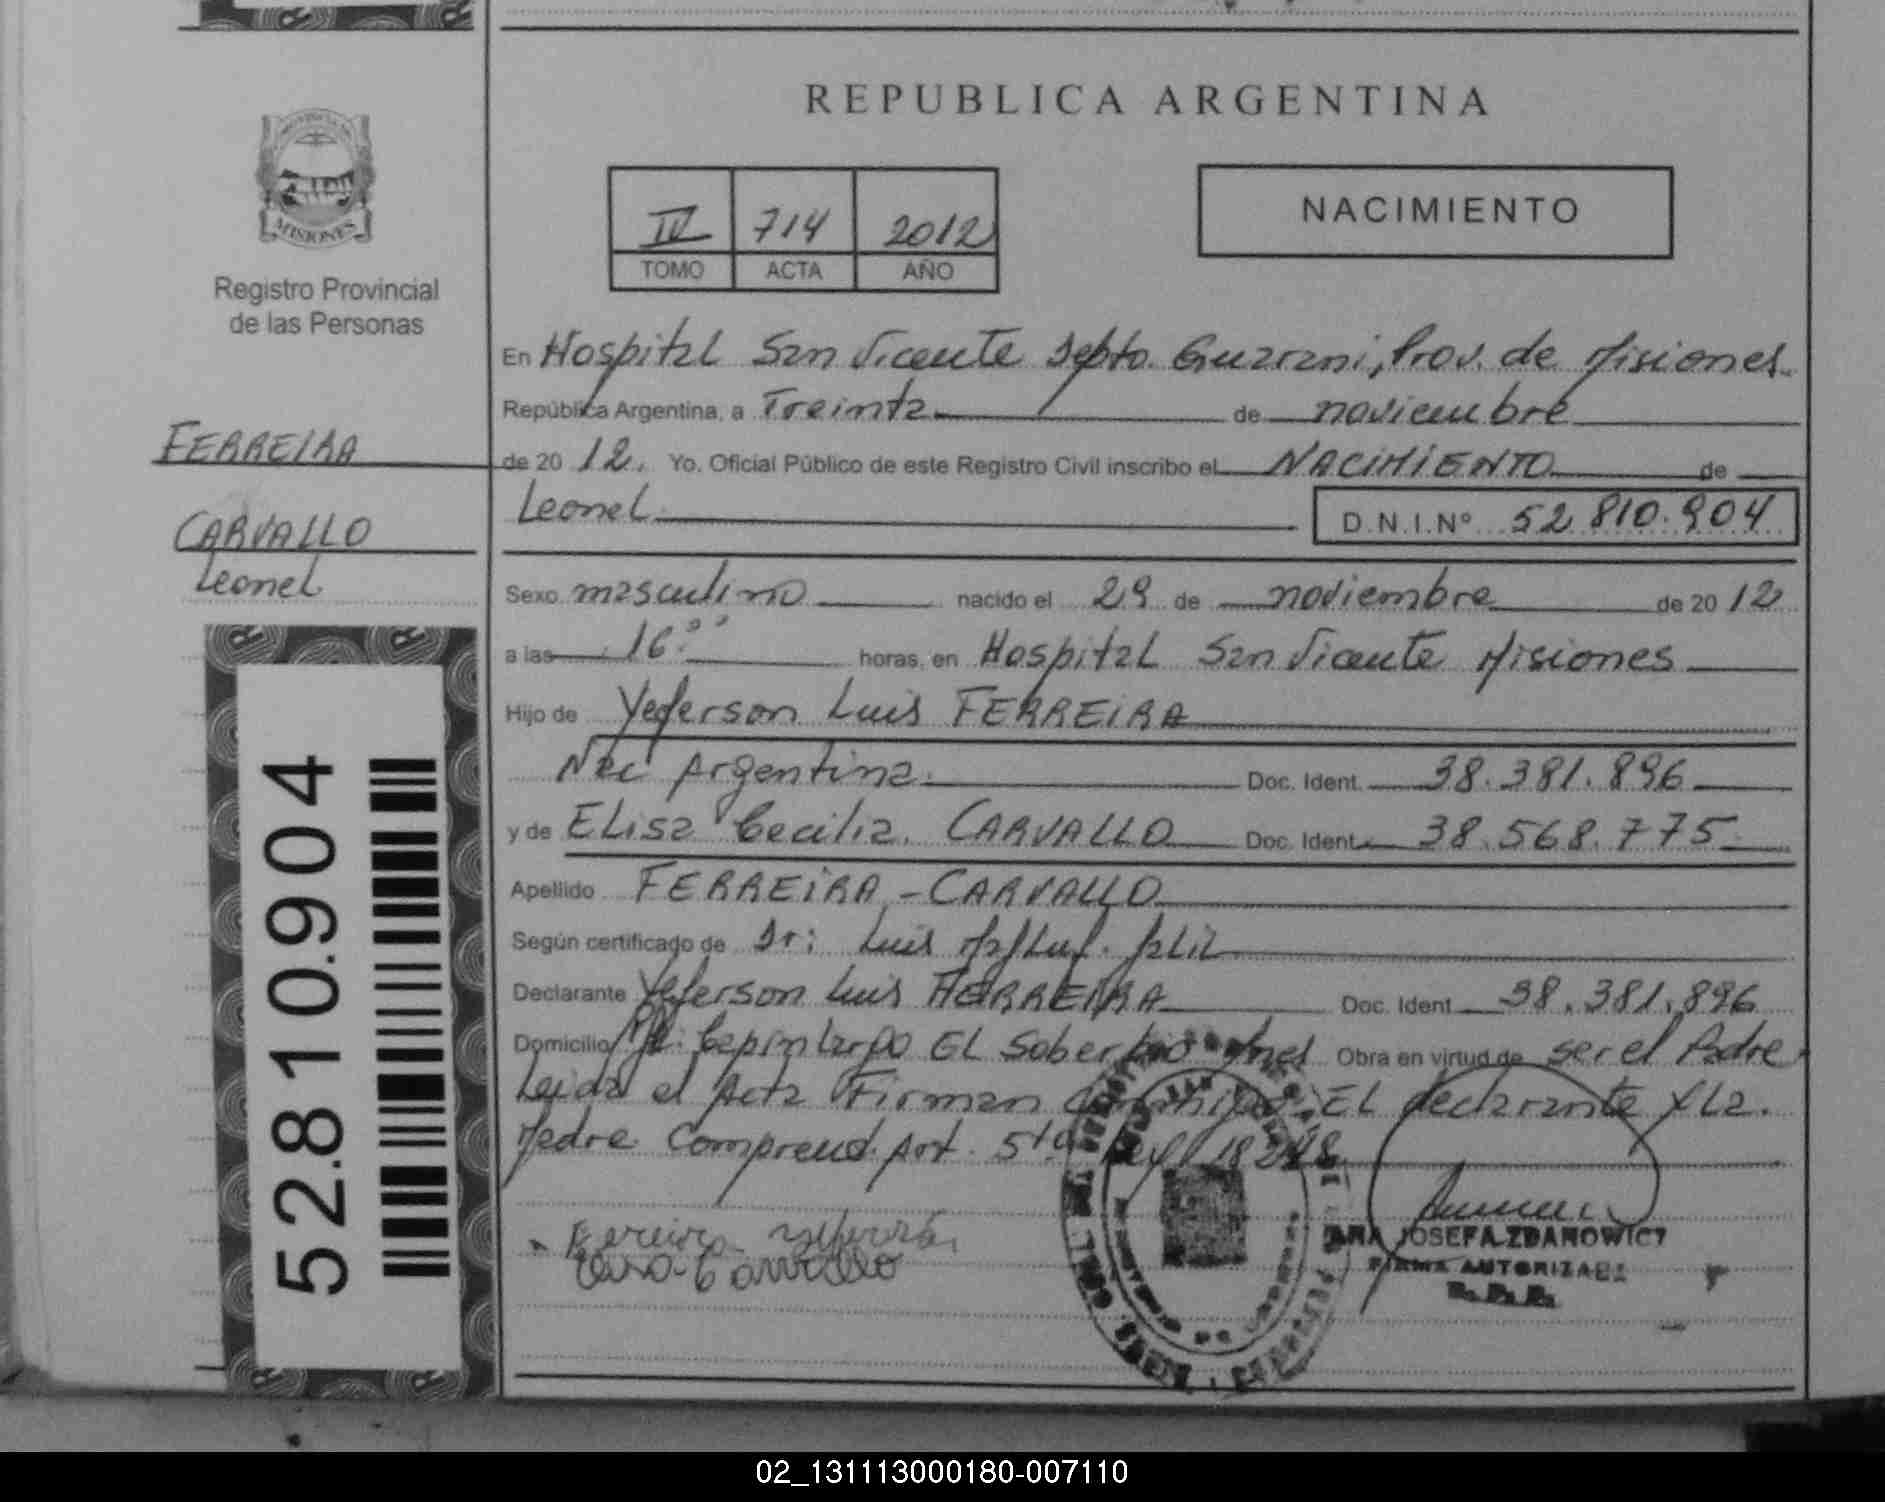 REPUBLICA ARGENTINA
PROVINCIA DE
MISIONES
Registro Provincial
de las Personas
IV 714 2012
TOMO ACTA AÑO
NACIMIENTO
En Hospital San Vicente Depto. Guarani, Prov. de Misiones.
República Argentina, a Treinta de noviembre
FERREIRA
de 20 12. Yo, Oficial Público de este Registro Civil inscribo el NACIMIENTO de
Leonel
D.N.I.Nº 52.810.904
CARVALLO
Leonel
Sexo masculino nacido el 29 de noviembre de 20 12
a las 16:00 horas, en Hospital San Vicente Misiones
Hijo de Yeferson Luis FERREIRA
Nac Argentina. Doc. Ident. 38.381.896
y de Elisa Cecilia. CARVALLO Doc. Ident. 38.568.775
Apellido FERREIRA - CARVALLO
Según certificado de Dr: Luis Jalil
Declarante Yeferson Luis FERREIRA Doc. Ident. 38.381.896
Domicilio El Soberbio Mnes Obra en virtud de ser el Padre.
Leida el Acta Firman conmigo: El declarante y La.
Madre Comprend. Art. 5to Ley 18248
52.810.904
Ferreira
Carvallo
ANA JOSEFA ZDANOWICZ
FIRMA AUTORIZADA
R. P. P.
02_131113000180-007110